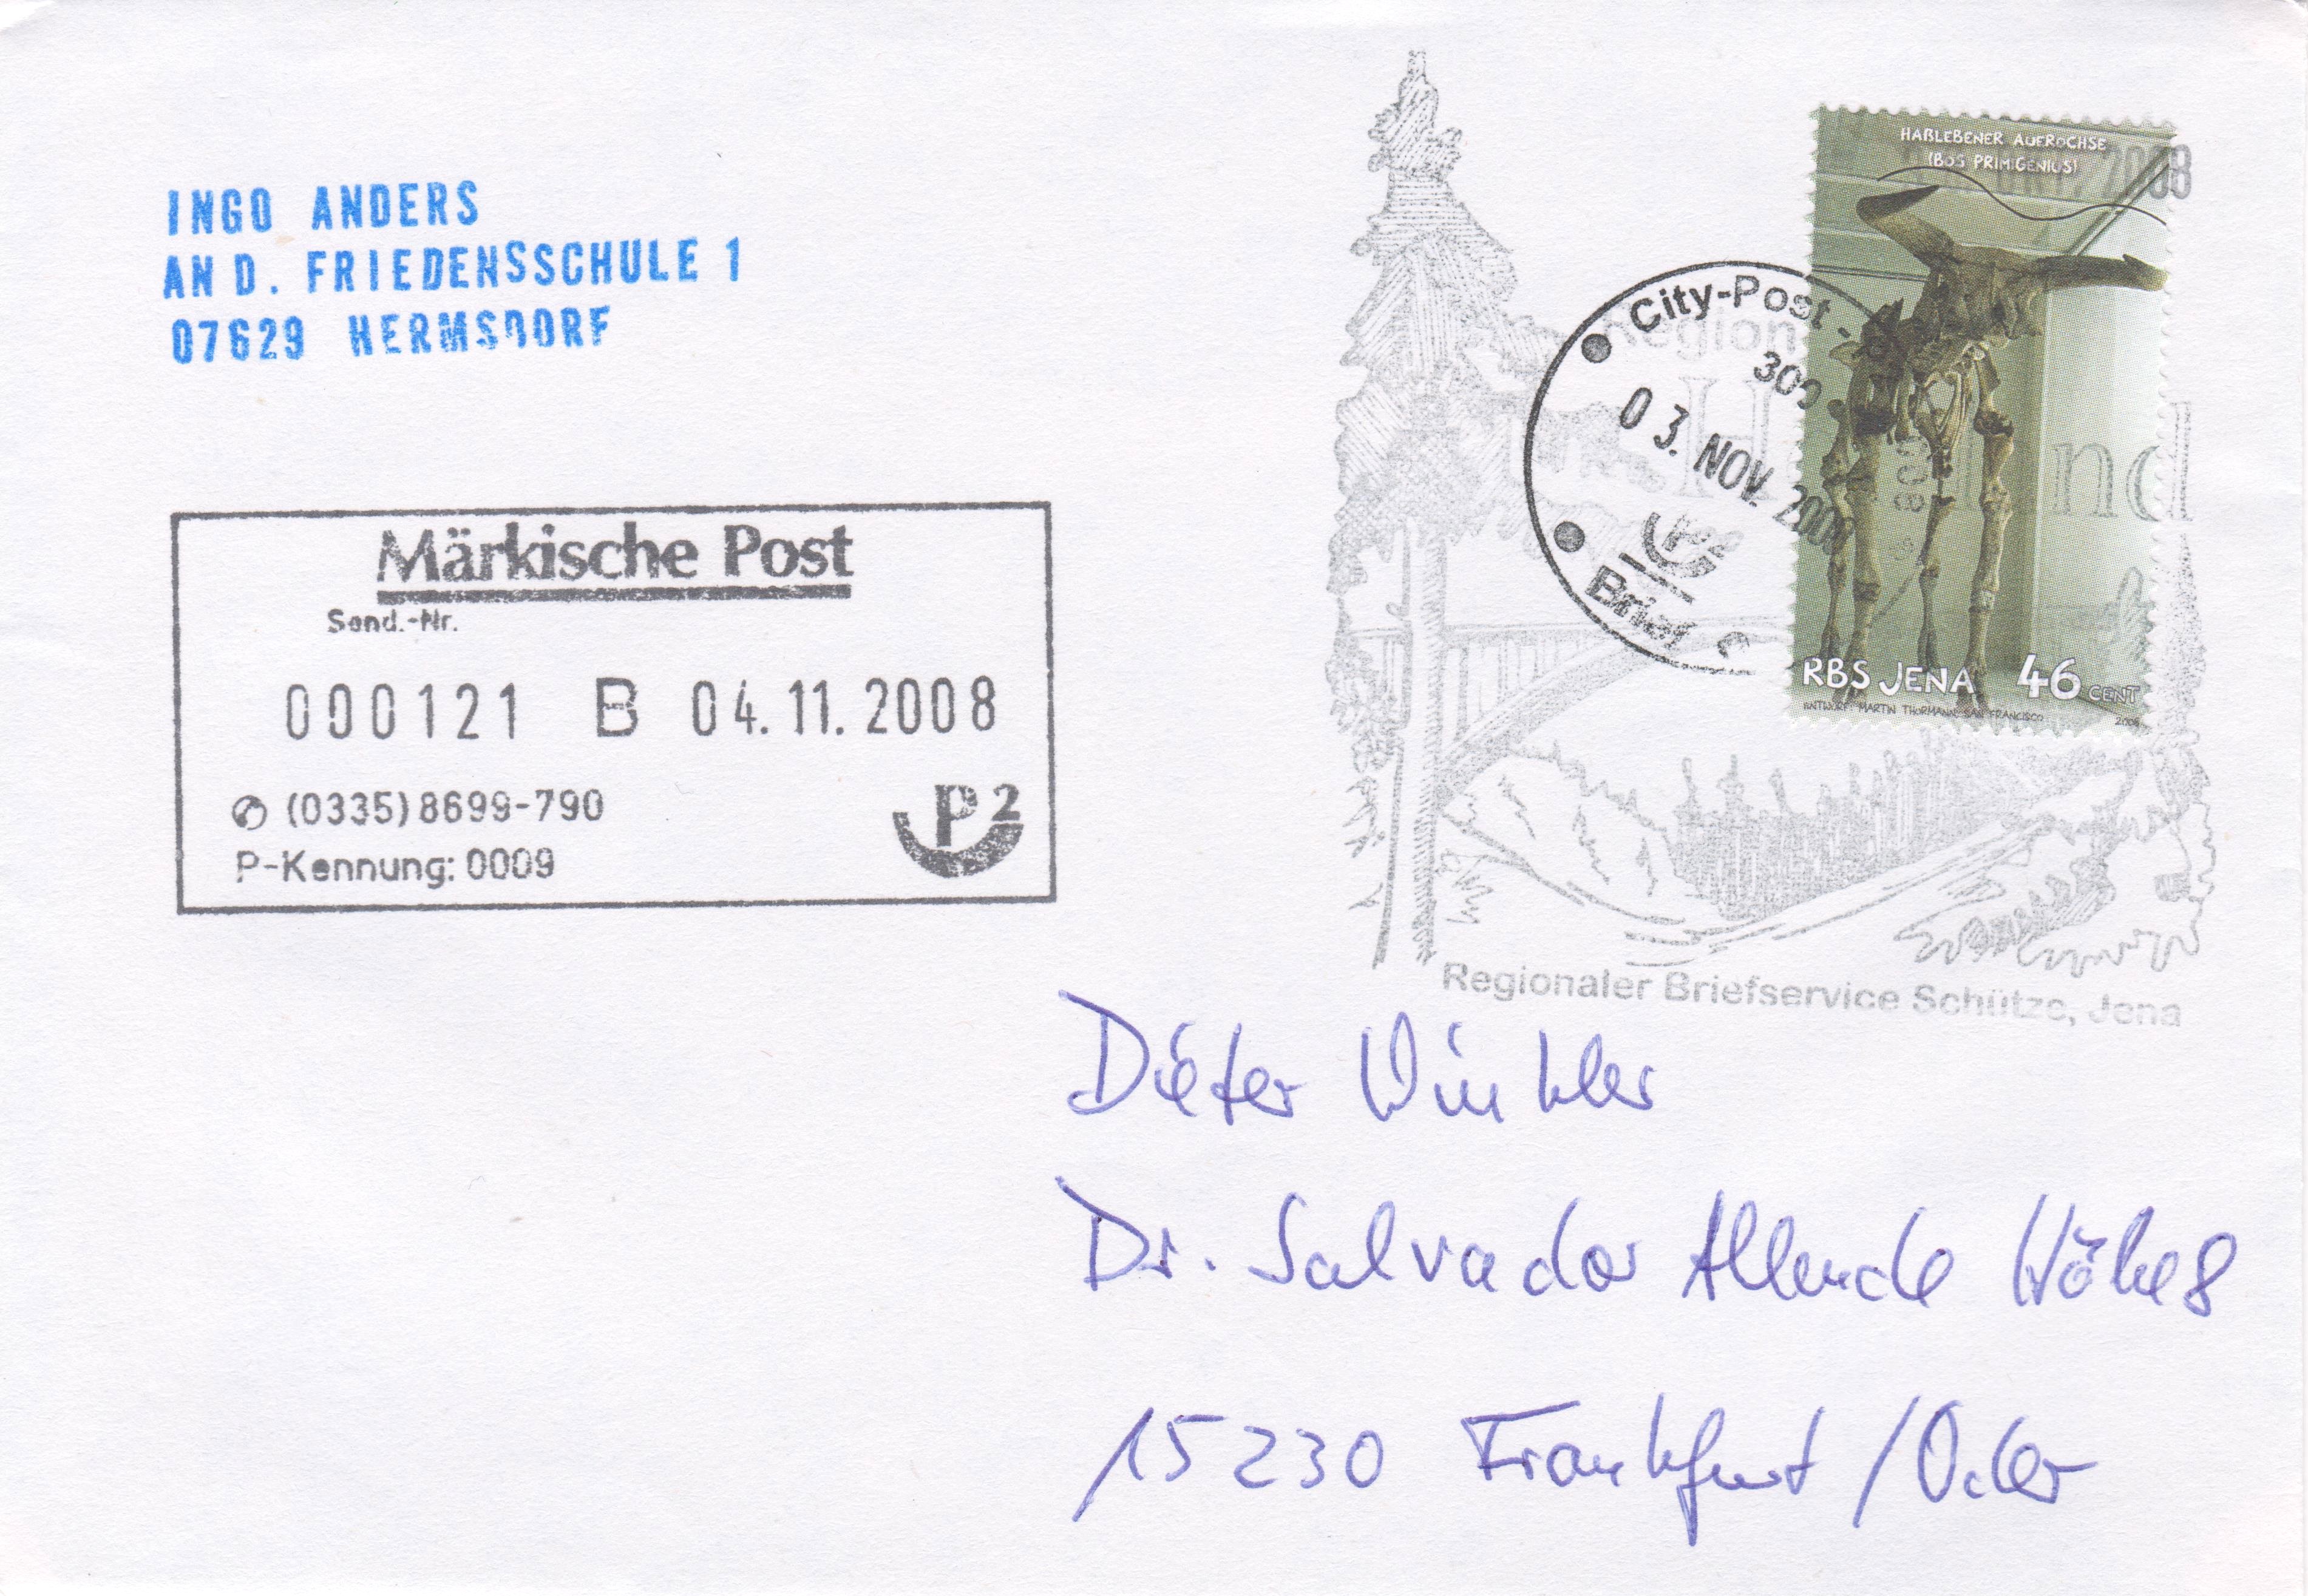 INGO ANDERS
AN D. FRIEDENSSCHULE 1
07629 HERMSDORF
Märkische Post
Send.-Nr.
000121 B 04.11.2008
(0335) 8699-790
P-Kennung: 0009
P2
HAßLEBENER AUEROCHSE
(BOS PRIMIGENIUS)
2008
City-Post -
Region
300
03. NOV. 2008
nd
Brief
RBS JENA 46 CENT
ENTWURF: MARTIN THORMANN SAN FRANCISCO 2008
Regionaler Briefservice Schütze, Jena
Dieter Winkler
Dr. Salvador Allende Höhe 8
15230 Frankfurt /Oder